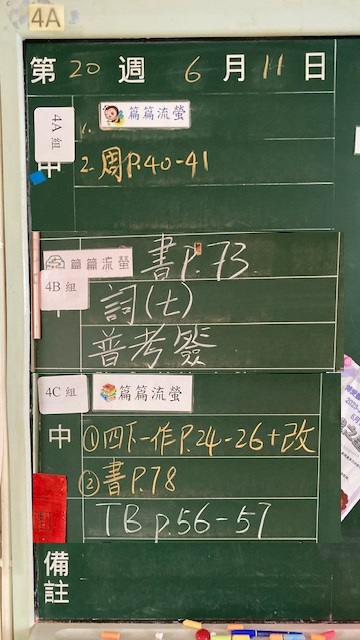 4A
第 20 週 6 月 11 日
4A 組
1. 篇篇流螢
中
2. 周P.40-41
篇篇流螢 書P.73
4B 組
詞(七)
普考簽
4C 組 篇篇流螢
中 ①四下一作P.24-26+改
②書P.78
TB p.56-57
備註